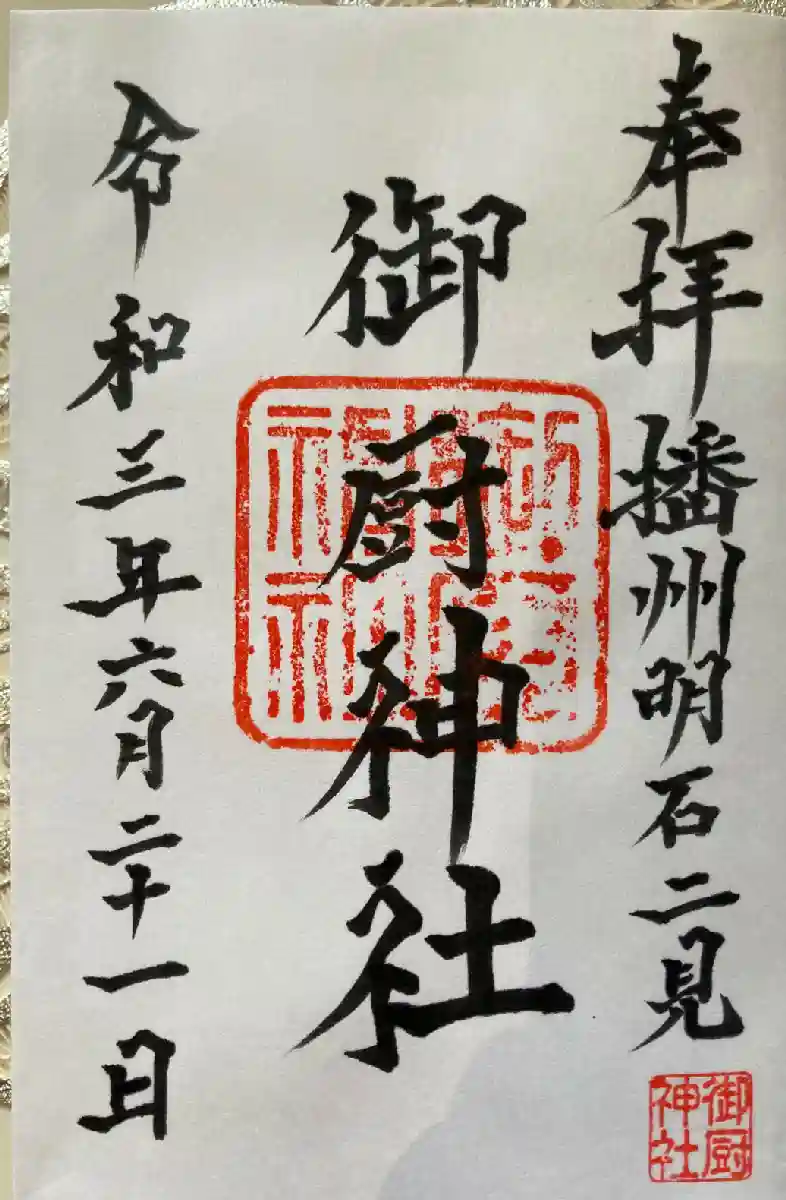 奉拝播州明石二見
御厨神社
令和三年六月二十一日
御厨
神社